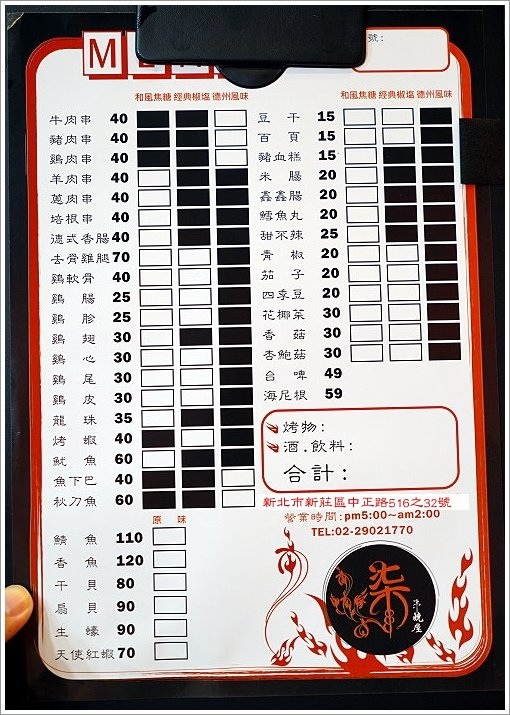 M
號:
和風焦糖 經典椒塩 德州風味
牛肉串 40
豬肉串 40
鷄肉串 40
羊肉串 40
蔥肉串 40
培根串 40
德式香腸 40
去骨雞腿 70
鷄軟骨 40
鷄腸 25
鷄胗 25
鷄翅 30
鷄心 30
鷄尾 30
鷄皮 30
龍珠 35
烤蝦 40
魷魚 60
魚下巴 40
秋刀魚 60
原味
鯖魚 110
香魚 120
干貝 80
扇貝 90
生蠔 90
天使紅蝦 70
和風焦糖 經典椒塩 德州風味
豆干 15
百頁 15
豬血糕 15
米腸 20
鑫鑫腸 20
鱈魚丸 20
甜不辣 25
青椒 20
茄子 20
四季豆 20
花椰菜 30
香菇 30
杏鮑菇 30
台啤 49
海尼根 59
烤物:
酒.飲料:
合計:
新北市新莊區中正路516之32號
營業時間:pm5:00~am2:00
TEL:02-29021770
柒
串燒屋